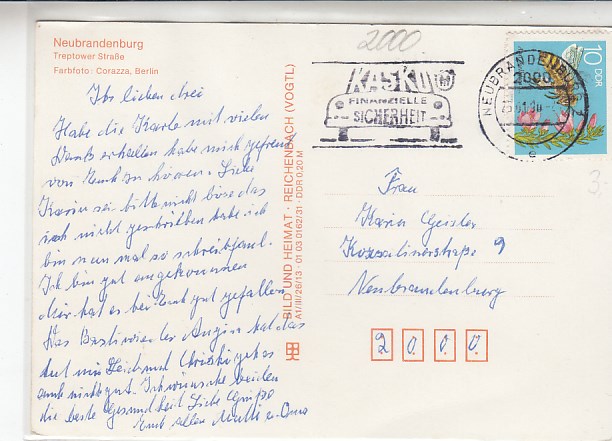 Neubrandenburg
Treptower Straße
Farbfoto: Corazza, Berlin
2000
KASKO
FINANZIELLE
SICHERHEIT
NEUBRANDENBURG
2000
10 DDR
Ihr lieben drei
Habe die Karte mit vielen
Dank erhalten habe mich gefreut
von Euch zu hören. Liebe
Karin sei bitte nicht böse das
ich nicht geschrieben habe ich
bin nun mal so schreibfaul.
Ich bin gut angekommen
mir hat es bei Euch gut gefallen
Das Basti wieder Angina hat das
tut mir Leid und geht es
auch nicht gut. Ich wünsche beiden
die beste Gesundheit Liebe Grüße
Euch allen Mutti u. Oma
BILD UND HEIMAT · REICHENBACH (VOGTL)
A1/III/26/13 · 01 03 0162/31 · DDR 0,20 M
Frau
Karin Geisler
Koszalinerstraße 9
Neubrandenburg
2 0 0 0
3.